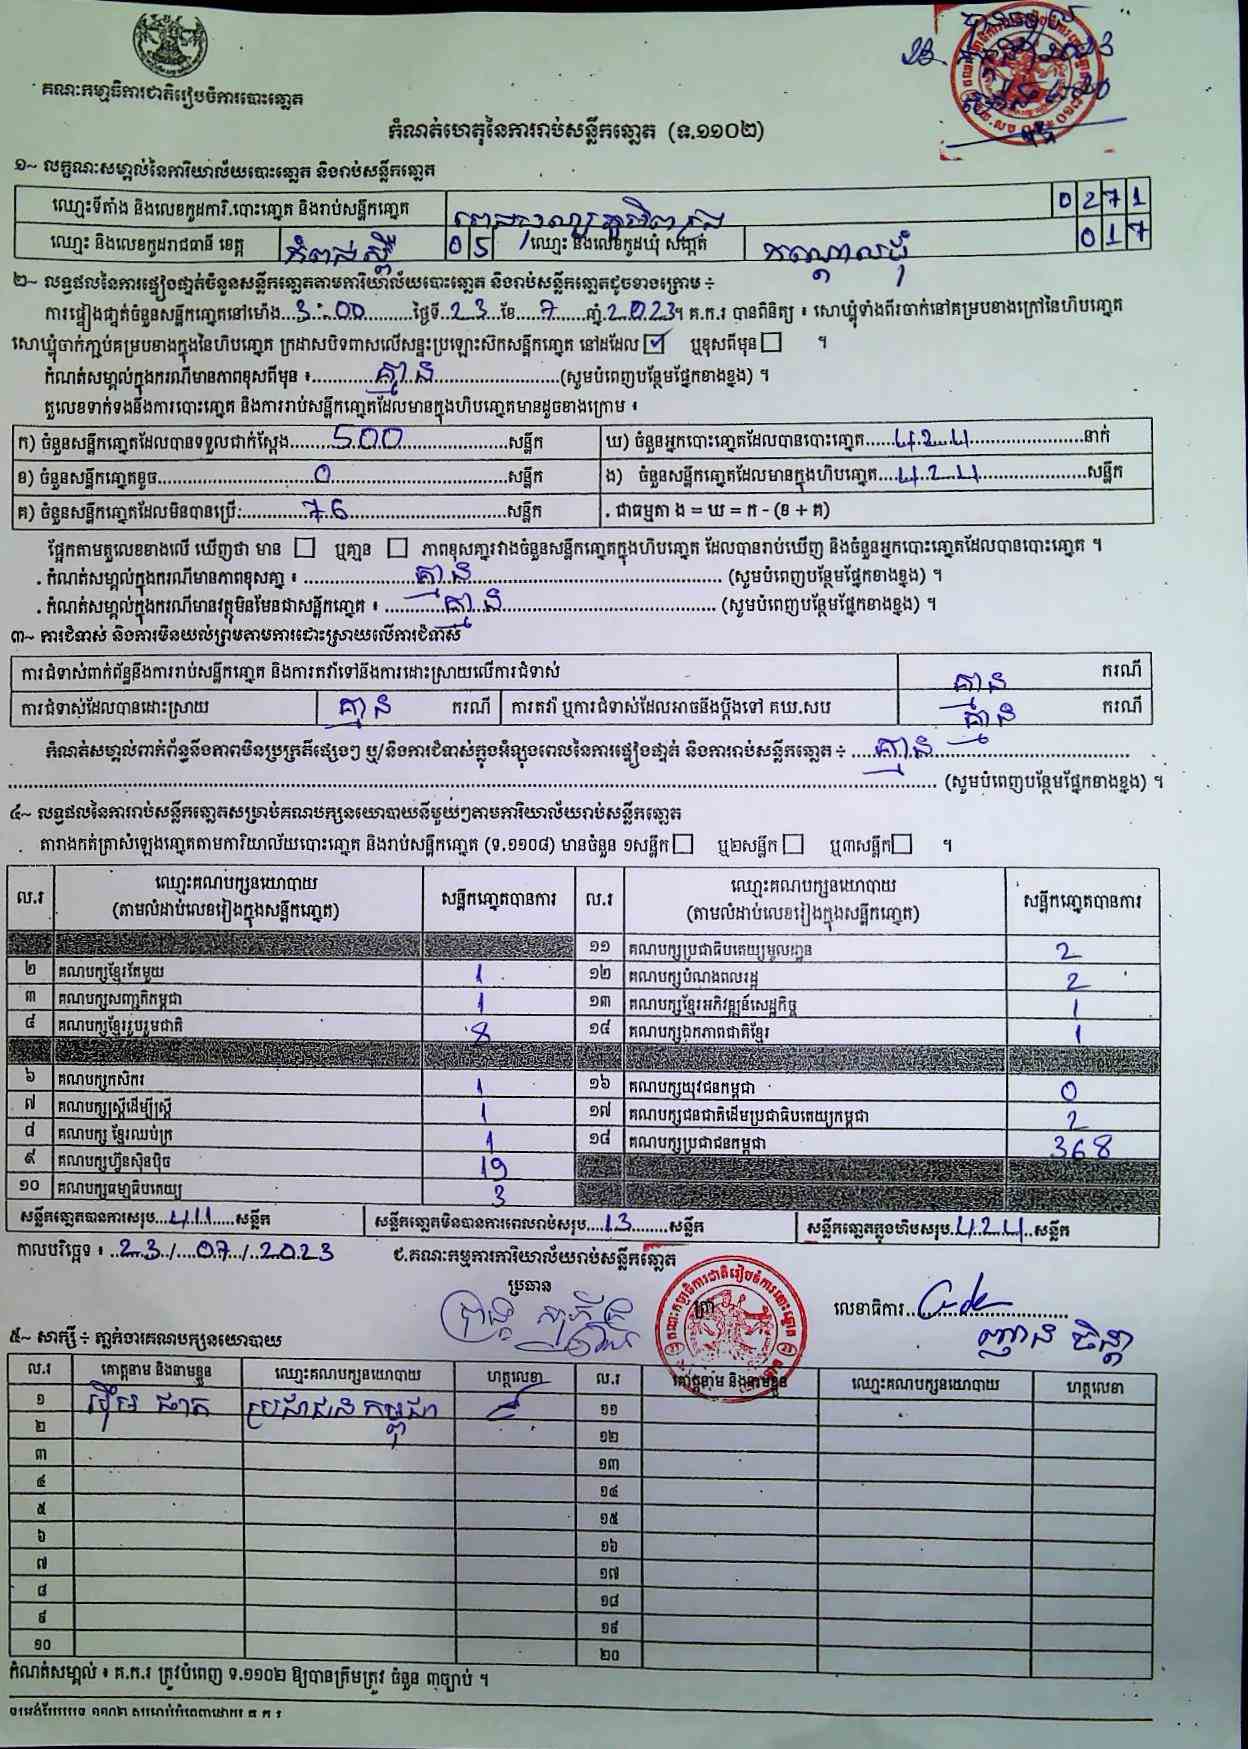 គណៈកម្មាធិការជាតិរៀបចំការបោះឆ្នោត
កំណត់ហេតុនៃការរាប់សន្លឹកឆ្នោត (ទ.១១០២)
១~ លក្ខណៈសម្គាល់នៃការិយាល័យបោះឆ្នោត និងរាប់សន្លឹកឆ្នោត
ឈ្មោះទីតាំង និងលេខកូដការិ.បោះឆ្នោត និងរាប់សន្លឹកឆ្នោត 0271
ឈ្មោះ និងលេខកូដរាជធានី ខេត្ត កំពង់ស្ពឺ 05 ឈ្មោះ និងលេខកូដឃុំ សង្កាត់ 017
២~ លទ្ធផលនៃការផ្ទៀងផ្ទាត់ចំនួនសន្លឹកឆ្នោតតាមការិយាល័យបោះឆ្នោត និងរាប់សន្លឹកឆ្នោតដូចខាងក្រោម ÷
ការផ្ទៀងផ្ទាត់ចំនួនសន្លឹកឆ្នោតនៅម៉ោង 3:00 ថ្ងៃទី 23 ខែ 7 ឆ្នាំ 2023។ គ.ក.រ បានពិនិត្យ ៖ សោឃ្មុំទាំងពីរចាក់នៅគម្របខាងក្រៅនៃហិបឆ្នោត
សោឃ្មុំចាក់ភ្ជាប់គម្របខាងក្នុងនៃហិបឆ្នោត ក្រដាសបិទពាសលើសន្ទះប្រឡោះស៊កសន្លឹកឆ្នោត នៅដដែល ☑ ឬខុសពីមុន ☐ ។
កំណត់សម្គាល់ក្នុងករណីមានភាពខុសពីមុន ៖ គ្មាន (សូមបំពេញបន្ថែមផ្នែកខាងខ្នង) ។
តួលេខទាក់ទងនឹងការបោះឆ្នោត និងការរាប់សន្លឹកឆ្នោតដែលមានក្នុងហិបឆ្នោតមានដូចខាងក្រោម ៖
ក) ចំនួនសន្លឹកឆ្នោតដែលបានទទួលជាក់ស្តែង 500 សន្លឹក ឃ) ចំនួនអ្នកបោះឆ្នោតដែលបានបោះឆ្នោត 424 នាក់
ខ) ចំនួនសន្លឹកឆ្នោតខូច 0 សន្លឹក ង) ចំនួនសន្លឹកឆ្នោតដែលមានក្នុងហិបឆ្នោត 424 សន្លឹក
គ) ចំនួនសន្លឹកឆ្នោតដែលមិនបានប្រើ: 76 សន្លឹក . ជាធម្មតា ង = ឃ = ក - (ខ + គ)
ផ្អែកតាមតួលេខខាងលើ ឃើញថា មាន ☐ ឬគ្មាន ☐ ភាពខុសគ្នារវាងចំនួនសន្លឹកឆ្នោតក្នុងហិបឆ្នោត ដែលបានរាប់ឃើញ និងចំនួនអ្នកបោះឆ្នោតដែលបានបោះឆ្នោត ។
. កំណត់សម្គាល់ក្នុងករណីមានភាពខុសគ្នា ៖ គ្មាន (សូមបំពេញបន្ថែមផ្នែកខាងខ្នង) ។
. កំណត់សម្គាល់ក្នុងករណីមានវត្ថុមិនមែនជាសន្លឹកឆ្នោត ៖ គ្មាន (សូមបំពេញបន្ថែមផ្នែកខាងខ្នង) ។
៣~ ការជំទាស់ និងការមិនយល់ព្រមតាមការដោះស្រាយលើការជំទាស់
ការជំទាស់ពាក់ព័ន្ធនឹងការរាប់សន្លឹកឆ្នោត និងការតវ៉ាទៅនឹងការដោះស្រាយលើការជំទាស់ គ្មាន ករណី
ការជំទាស់ដែលបានដោះស្រាយ គ្មាន ករណី ការតវ៉ា ឬការជំទាស់ដែលអាចនឹងប្តឹងទៅ គឃ.សប គ្មាន ករណី
កំណត់សម្គាល់ពាក់ព័ន្ធនឹងភាពមិនប្រក្រតីផ្សេងៗ ឬ/និងការជំទាស់ក្នុងអំឡុងពេលនៃការផ្ទៀងផ្ទាត់ និងការរាប់សន្លឹកឆ្នោត ÷ គ្មាន
(សូមបំពេញបន្ថែមផ្នែកខាងខ្នង) ។
៤~ លទ្ធផលនៃការរាប់សន្លឹកឆ្នោតសម្រាប់គណបក្សនយោបាយនីមួយៗតាមការិយាល័យរាប់សន្លឹកឆ្នោត
តារាងកត់ត្រាសំឡេងឆ្នោតតាមការិយាល័យបោះឆ្នោត និងរាប់សន្លឹកឆ្នោត (ទ.១១០៨) មានចំនួន ១សន្លឹក ☐ ឬ២សន្លឹក ☐ ឬ៣សន្លឹក ☐ ។
ល.រ ឈ្មោះគណបក្សនយោបាយ (តាមលំដាប់លេខរៀងក្នុងសន្លឹកឆ្នោត) សន្លឹកឆ្នោតបានការ ល.រ ឈ្មោះគណបក្សនយោបាយ (តាមលំដាប់លេខរៀងក្នុងសន្លឹកឆ្នោត) សន្លឹកឆ្នោតបានការ
១១ គណបក្សប្រជាធិបតេយ្យមូលដ្ឋាន 2
២ គណបក្សខ្មែរតែមួយ 1 ១២ គណបក្សបំណងពលរដ្ឋ 2
៣ គណបក្សសញ្ជាតិកម្ពុជា 1 ១៣ គណបក្សខ្មែរអភិវឌ្ឍន៍សេដ្ឋកិច្ច 1
៤ គណបក្សខ្មែររួបរួមជាតិ 8 ១៤ គណបក្សឯកភាពជាតិខ្មែរ 1
៦ គណបក្សកសិករ 1 ១៦ គណបក្សយុវជនកម្ពុជា 0
៧ គណបក្សស្ត្រីដើម្បីស្ត្រី 1 ១៧ គណបក្សជនជាតិដើមប្រជាធិបតេយ្យកម្ពុជា 2
៨ គណបក្ស ខ្មែរឈប់ក្រ 1 ១៨ គណបក្សប្រជាជនកម្ពុជា 368
៩ គណបក្សហ៊្វុនស៊ិនប៉ិច 19
១០ គណបក្សធម្មាធិបតេយ្យ 3
សន្លឹកឆ្នោតបានការសរុប 411 សន្លឹក សន្លឹកឆ្នោតមិនបានការពេលរាប់សរុប 13 សន្លឹក សន្លឹកឆ្នោតក្នុងហិបសរុប 424 សន្លឹក
កាលបរិច្ឆេទ ៖ 23/07/2023 ជ.គណៈកម្មការការិយាល័យរាប់សន្លឹកឆ្នោត
ប្រធាន
លេខាធិការ
៥~ សាក្សី ÷ ភ្នាក់ងារគណបក្សនយោបាយ
ល.រ គោត្តនាម និងនាមខ្លួន ឈ្មោះគណបក្សនយោបាយ ហត្ថលេខា ល.រ គោត្តនាម និងនាមខ្លួន ឈ្មោះគណបក្សនយោបាយ ហត្ថលេខា
១ ប្រជាជនកម្ពុជា ១១
២ ១២
៣ ១៣
៤ ១៤
៥ ១៥
៦ ១៦
៧ ១៧
៨ ១៨
៩ ១៩
១០ ២០
កំណត់សម្គាល់ ៖ គ.ក.រ ត្រូវបំពេញ ទ.១១០២ ឱ្យបានត្រឹមត្រូវ ចំនួន ៣ច្បាប់ ។